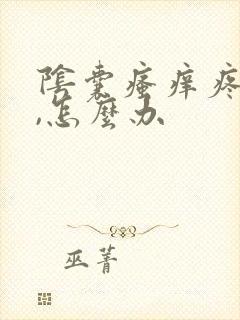 陰囊瘙痒疼
,怎麼办
巫菁